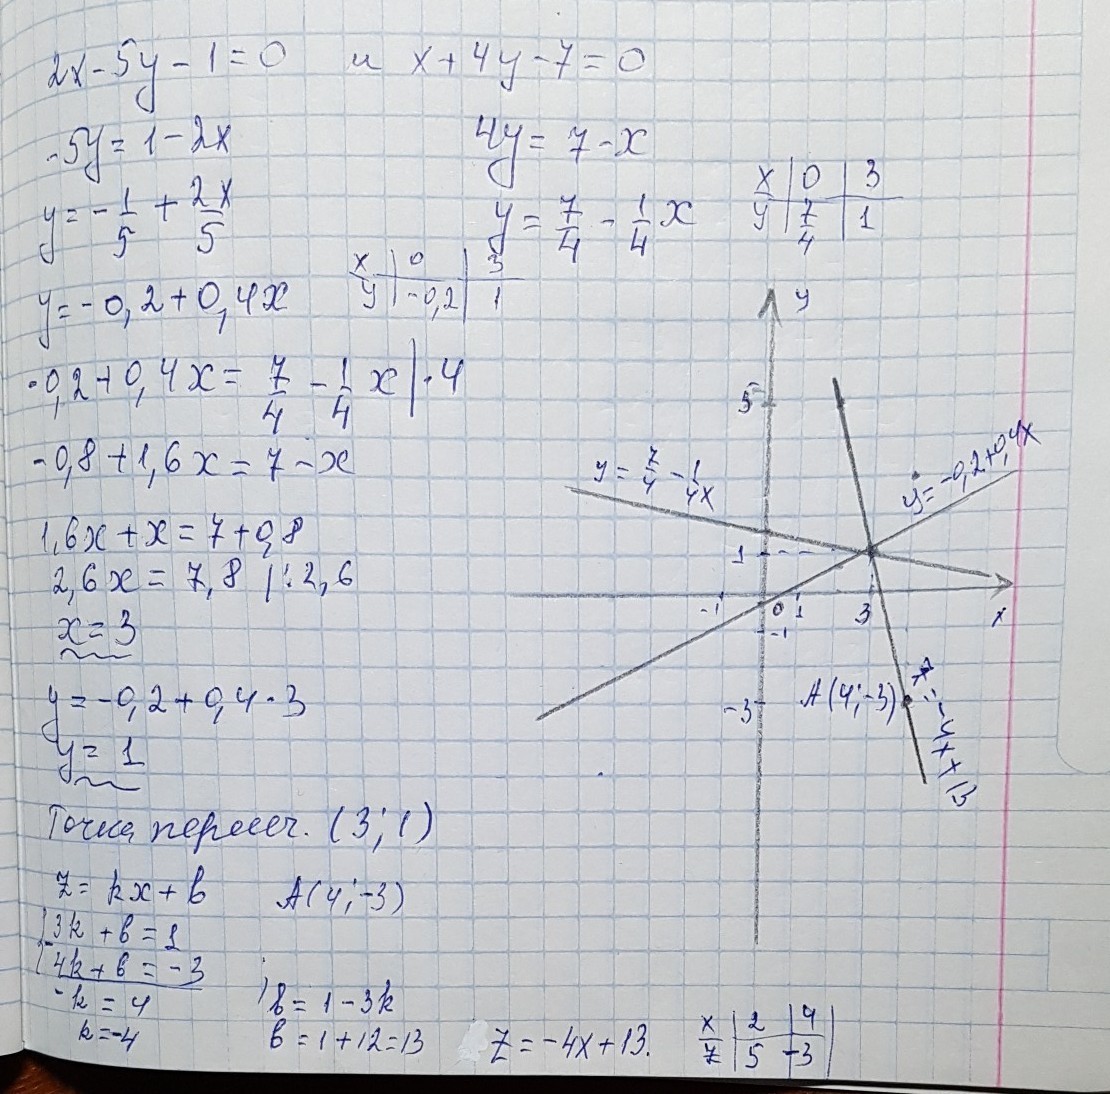 2x - 5y - 1 = 0 и x + 4y - 7 = 0
-5y = 1 - 2x
4y = 7 - x
y = -1/5 + 2x/5
y = 7/4 - 1/4 x
x | 0 | 3
y | 7/4 | 1
y = -0,2 + 0,4x
x | 0 | 3
y | -0,2 | 1
-0,2 + 0,4x = 7/4 - 1/4 x | · 4
-0,8 + 1,6x = 7 - x
1,6x + x = 7 + 0,8
2,6x = 7,8 | : 2,6
x = 3
y = -0,2 + 0,4 · 3
y = 1
y
5
y = 7/4 - 1/4x
y = -0,2 + 0,4x
1
-1
0
1
3
x
-1
-3
A(4; -3)
z = -4x + 13
Точка пересеч. (3; 1)
z = kx + b A(4; -3)
3k + b = 1
4k + b = -3
-k = 4
k = -4
b = 1 - 3k
b = 1 + 12 = 13
z = -4x + 13.
x | 2 | 4
z | 5 | -3